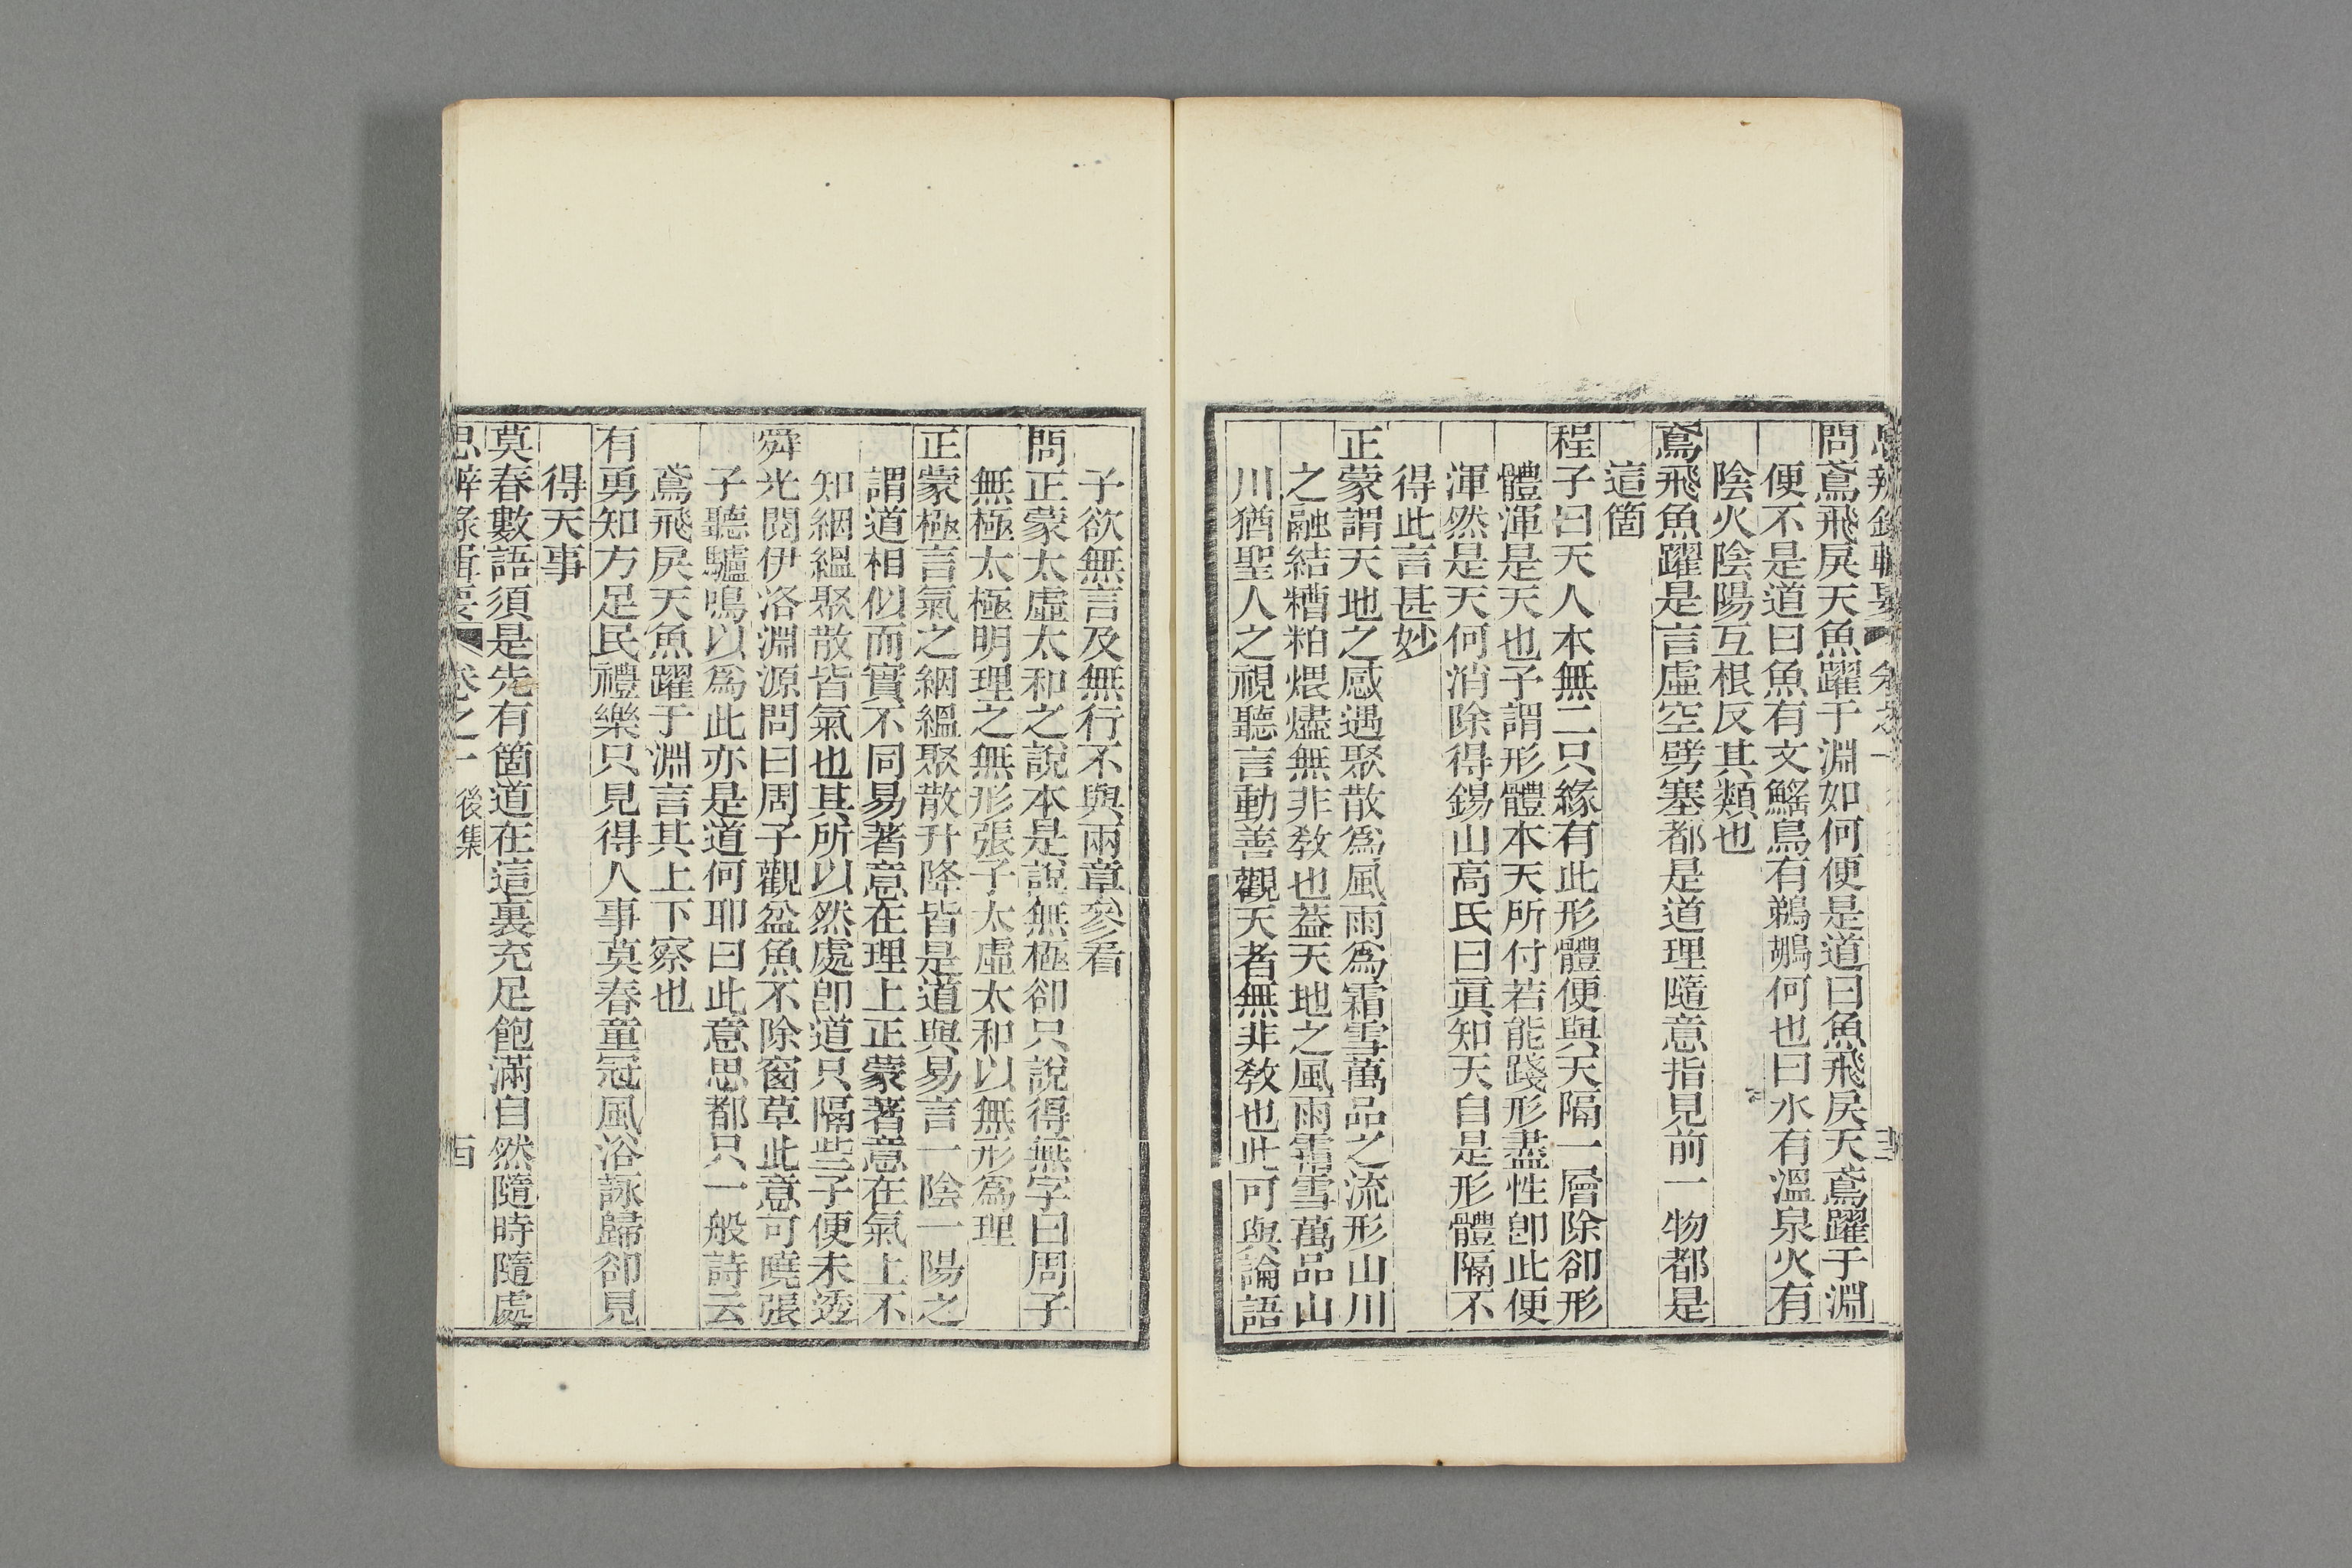 問鳶飛戾天魚躍于淵如何便是道曰魚飛戾天鳶躍于淵
便不是道曰魚有文鰩鳥有鵜鶘何也曰水有溫泉火有
陰火陰陽互根反其類也
鳶飛魚躍是言虛空劈塞都是道理隨意指見前一物都是
這箇
程子曰天人本無二只緣有此形體便與天隔一層除卻形
體渾是天也子謂形體本天所付若能踐形盡性卽此便
渾然是天何消除得錫山高氏曰眞知天自是形體隔不
得此言甚妙
正蒙謂天地之感遇聚散爲風雨爲霜雪萬品之流形山川
之融結糟粕煨燼無非敎也葢天地之風雨霜雪萬品山
川猶聖人之視聽言動善觀天者無非敎也此可與論語
子欲無言及無行不與兩章參看
問正蒙太虛太和之說本是說無極卻只說得無字曰周子
無極太極明理之無形張子太虛太和以無形爲理
正蒙極言氣之絪縕聚散升降皆是道與易言一陰一陽之
謂道相似而實不同易著意在理上正蒙著意在氣上不
知絪縕聚散皆氣也其所以然處卽道只隔些子便未透
舜光閱伊洛淵源問曰周子觀盆魚不除窗草此意可曉張
子聽驢鳴以爲此亦是道何耶曰此意思都只一般詩云
鳶飛戾天魚躍于淵言其上下察也
有勇知方足民禮樂只見得人事莫春童冠風浴詠歸卻見
得天事
莫春數語須是先有箇道在這裏充足飽滿自然隨時隨處
思辨錄輯要 卷之一 後集